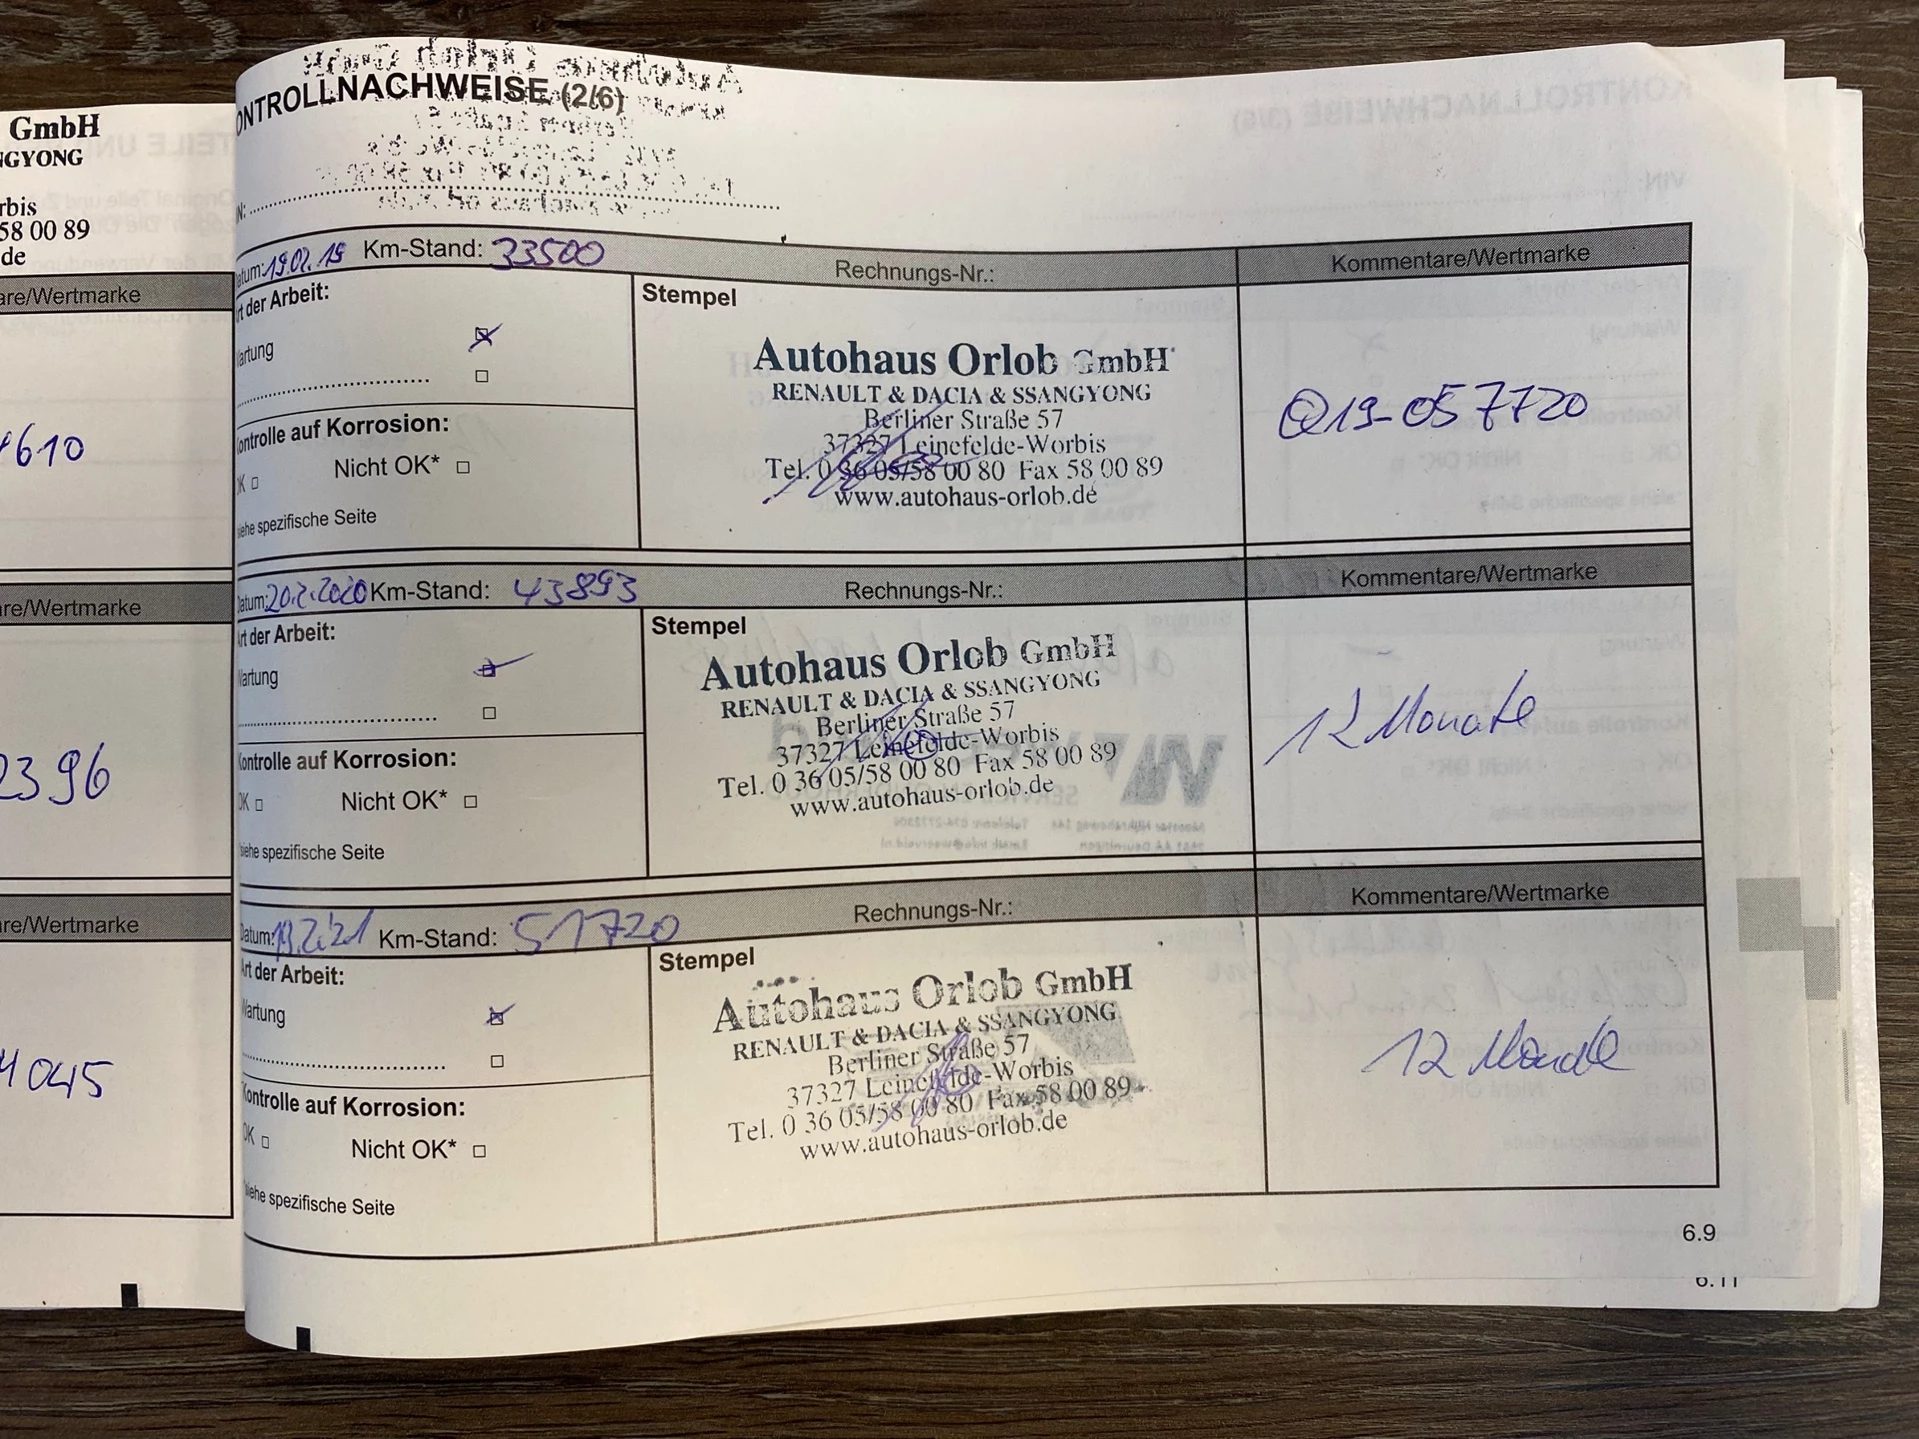 GmbH
NGYONG
rbis
58 00 89
de
are/Wertmarke
610
re/Wertmarke
2396
re/Wertmarke
045
ONTROLLNACHWEISE (2/6)
N:
atum: 19.02.19 Km-Stand: 33500 Rechnungs-Nr.: Kommentare/Wertmarke
rt der Arbeit:
Stempel
artung
Autohaus Orlob GmbH
RENAULT & DACIA & SSANGYONG
Berliner Straße 57
37327 Leinefelde-Worbis
Tel. 0 36 05/58 00 80 Fax 58 00 89
www.autohaus-orlob.de
Q19-057720
ontrolle auf Korrosion:
K Nicht OK*
siehe spezifische Seite
Datum: 20.2.2020 Km-Stand: 43893 Rechnungs-Nr.: Kommentare/Wertmarke
Art der Arbeit:
Stempel
Wartung
Autohaus Orlob GmbH
RENAULT & DACIA & SSANGYONG
Berliner Straße 57
37327 Leinefelde-Worbis
Tel. 0 36 05/58 00 80 Fax 58 00 89
www.autohaus-orlob.de
12 Monate
Kontrolle auf Korrosion:
OK Nicht OK*
siehe spezifische Seite
Datum: 19.2.21 Km-Stand: 51720 Rechnungs-Nr.: Kommentare/Wertmarke
Art der Arbeit:
Stempel
Wartung
Autohaus Orlob GmbH
RENAULT & DACIA & SSANGYONG
Berliner Straße 57
37327 Leinefelde-Worbis
Tel. 0 36 05/58 00 80 Fax 58 00 89
www.autohaus-orlob.de
12 Monate
Kontrolle auf Korrosion:
OK Nicht OK*
siehe spezifische Seite
6.9
6.11